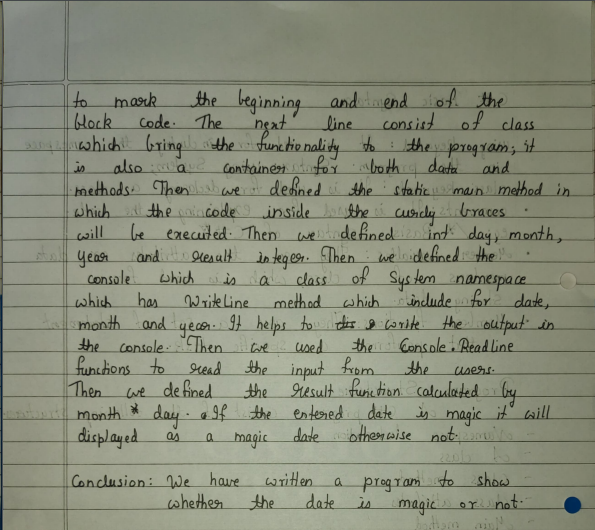 to mark the beginning and end of the
block code. The next line consist of class
which bring the functionality to the program; it
is also a container for both data and
methods. Then we defined the static main method in
which the code inside the curly braces
will be executed. Then we defined int day, month,
year and result integer. Then we defined the
console which is a class of System namespace
which has WriteLine method which include for date,
month and year. It helps to write the output in
the console. Then we used the Console.ReadLine
functions to read the input from the users.
Then we defined the result function calculated by
month * day. If the entered date is magic it will
displayed as a magic date otherwise not.
Conclusion: We have written a program to show
whether the date is magic or not.